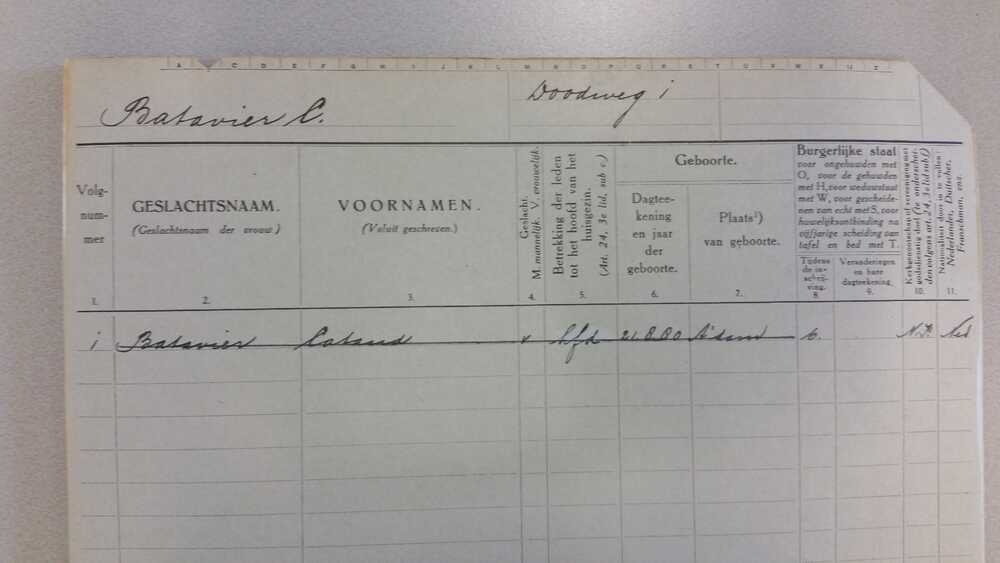 A C D E F G H I J K L M N O P Q R S T U V W X IJ Z
Batavier C.
Doodweg 1
Volg-
num-
mer
1.
GESLACHTSNAAM.
(Geslachtsnaam der vrouw.)
2.
VOORNAMEN.
(Voluit geschreven.)
3.
Geslacht.
M. mannelijk. V. vrouwelijk.
4.
Betrekking der leden
tot het hoofd van het
huisgezin.
(Art. 24, 3e lid, sub c.)
5.
Geboorte.
Dagtee-
kening
en jaar
der
geboorte.
6.
Plaats¹)
van geboorte.
7.
Burgerlijke staat
voor ongehuwden met
O, voor de gehuwden
met H, voor weduwstaat
met W, voor gescheide-
nen van echt met S, voor
huwelijksontbinding na
vijfjarige scheiding van
tafel en bed met T.
Tijdens
de in-
schrij-
ving.
8.
Veranderingen
en hare
dagteekening.
9.
Kerkgenootschap of vereeniging met
godsdienstig doel (te onderschei-
den volgens art. 24, 3e lid sub f)
10.
Nationaliteit (door in te vullen:
Nederlander, Duitscher,
Franschman, enz.
11.
1 Batavier hfd A'dam Ned